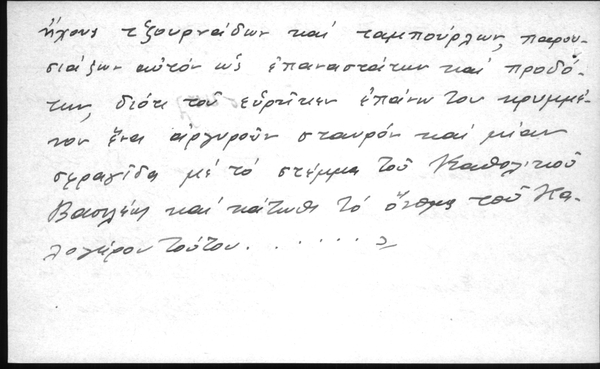 ἤχους τζουρνάδων καί ταμπούρλων, παρου-
σιάζων αὐτόν ὡς ἐπαναστάτην καί προδό-
την, διότι τοῦ εὑρῆκεν ἐπάνω του κρυμμέ-
νον ἕνα ἀργυροῦν σταυρόν καί μίαν
σφραγίδα μέ τό στέμμα τοῦ Καθολικοῦ
Βασιλέως καί κάτωθι τό ὄνομα τοῦ Κα-
λογήρου τούτου. . . . . . . »